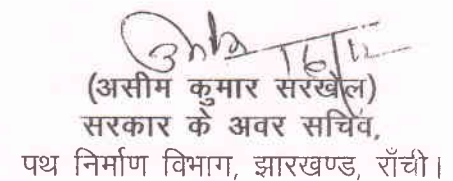 16/12
(असीम कुमार सरखेल)
सरकार के अवर सचिव,
पथ निर्माण विभाग, झारखण्ड, राँची।